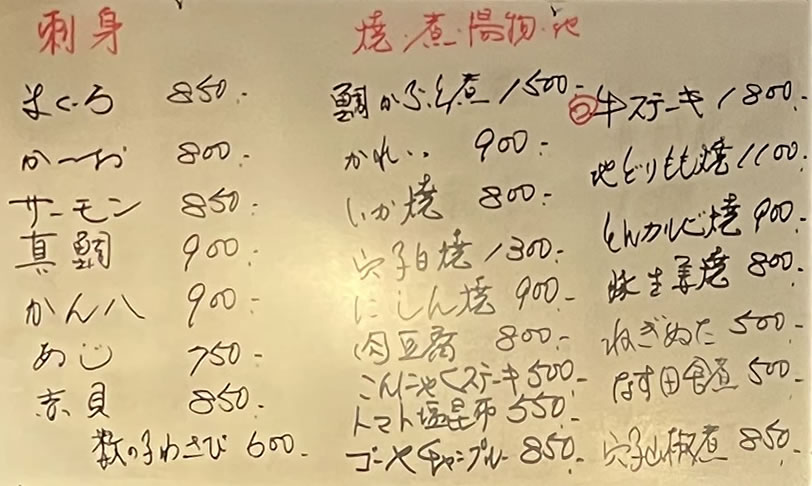 刺身
まぐろ 850.-
かつお 800.-
サーモン 850.-
真鯛 900.-
かん八 900.-
あじ 750.-
赤貝 850.-
数の子わさび 600.-
焼・煮・揚物・他
鯛かぶと煮 1500.-
かれい〃 900.-
いか焼 800.-
穴子白焼 1300.-
にしん焼 900.-
肉豆腐 800.-
こんにゃくステーキ 500.-
トマト塩昆布 550.-
ゴーヤチャンプルー 850.-
牛ステーキ 1800.-
地どりもも焼 1100.-
とんカルビ焼 900.-
豚生姜焼 800.-
ねぎぬた 500.-
なす田舎煮 500.-
穴子山椒煮 850.-